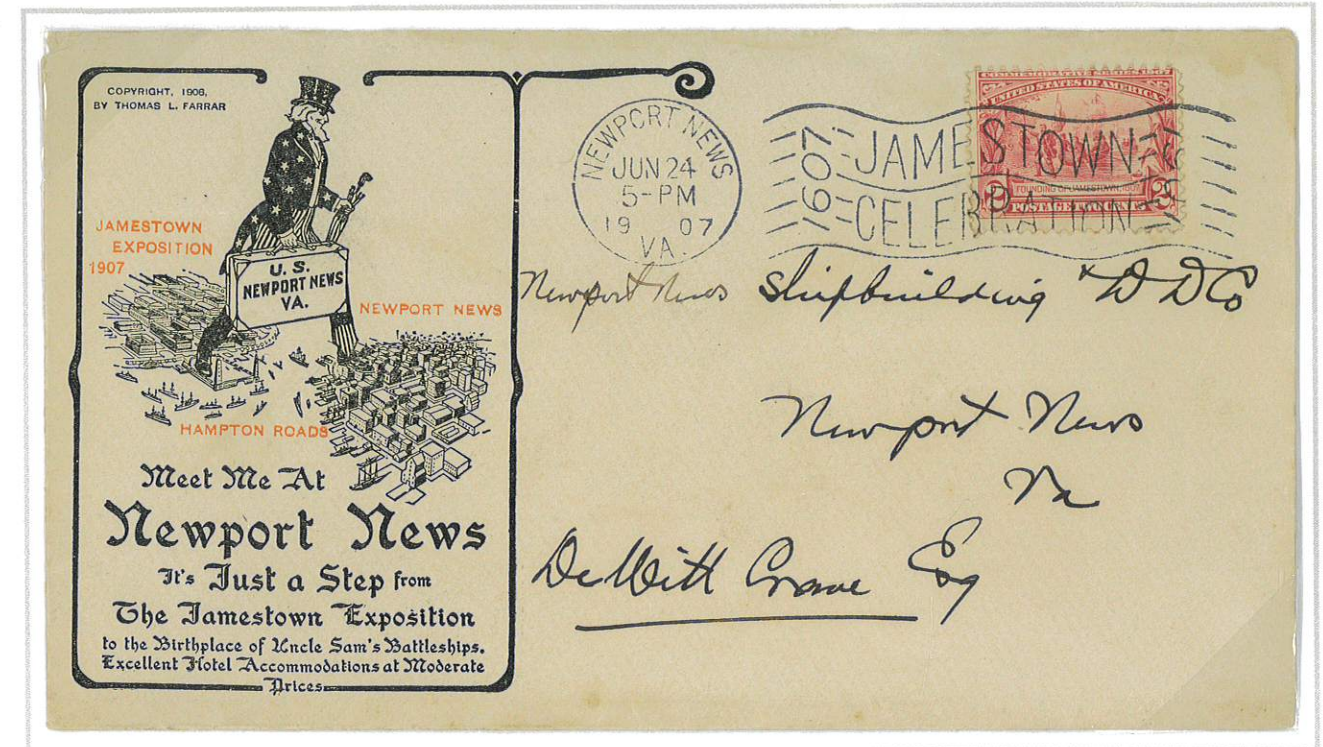 COPYRIGHT, 1906,
BY THOMAS L. FARRAR
JAMESTOWN
EXPOSITION
1907
U. S.
NEWPORT NEWS
VA.
NEWPORT NEWS
HAMPTON ROADS
Meet Me At
Newport News
It's Just a Step from
The Jamestown Exposition
to the Birthplace of Uncle Sam's Battleships.
Excellent Hotel Accommodations at Moderate
Prices
NEWPORT NEWS
JUN 24
5-PM
19 07
VA.
1607
JAMESTOWN
CELEBRATION
COMMEMORATIVE SERIES 1907
UNITED STATES OF AMERICA
FOUNDING OF JAMESTOWN, 1607
2 POSTAGE 2
Newport News Shipbuilding & D D Co
Newport News
Va
DeWitt Crane Esq